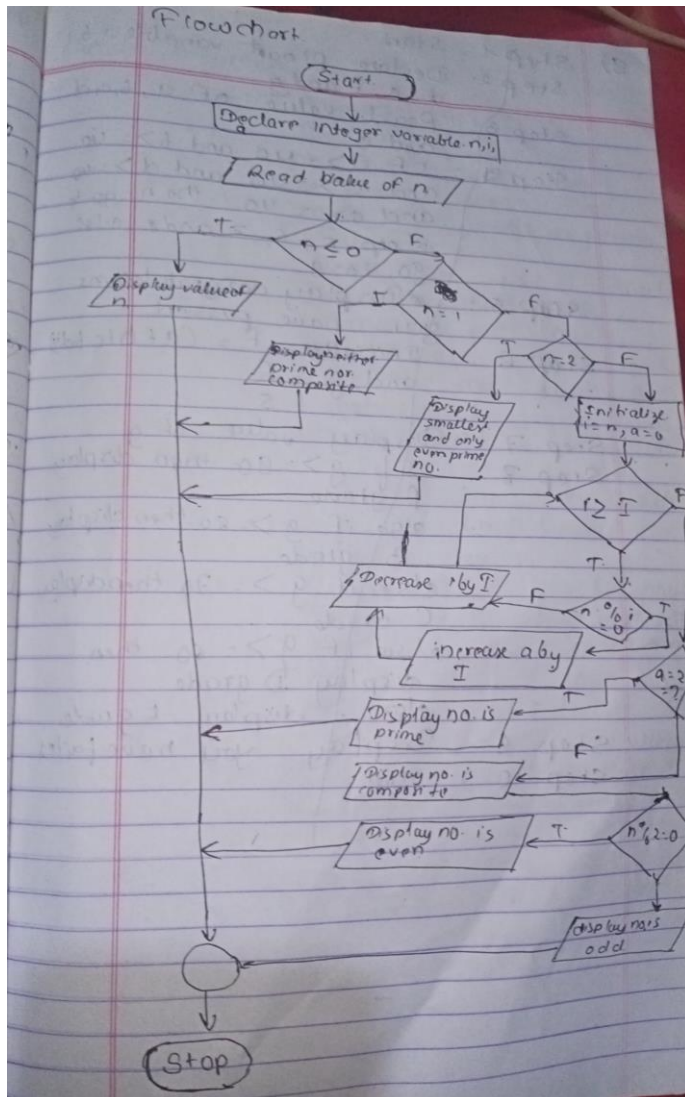 Flowchart
Start
Declare integer variable n,i,
a
Read value of n
n ≤ 0
T
F
Display value of
n
n=1
I
F
Display neither
prime nor
composite
n=2
T
F
Display
smallest
and only
even prime
no.
Initialize
i=n, a=0
i ≥ I
F
T
Decrease i by I
F
n % i
= 0
T
increase a by
I
a=2
=?
T
Display no. is
prime
F
Display no. is
composite
n%2=0
T
Display no. is
even
display no. is
odd
Stop